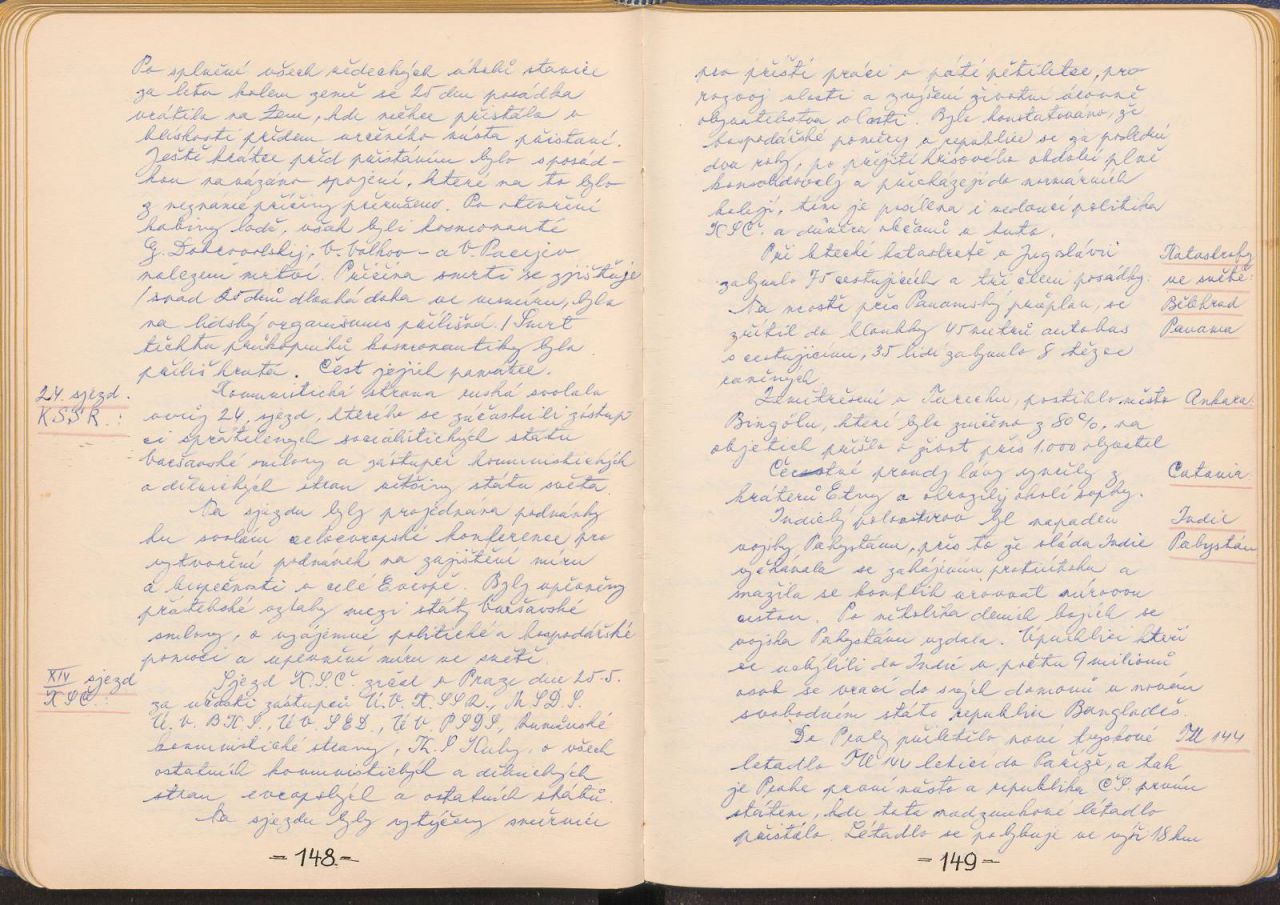 Po splnění všech vědeckých úkolů stanice
za letu kolem země se 25 dnu posádka
vrátila na Zem, kde měkce přistála v
blízkosti předem určeného místa přistání.
Ještě krátce před přistáním bylo s posád-
kou navázáno spojení, které na to bylo
z neznámé příčiny přerušeno. Po otevření
kabiny lodě, však byli kosmonauti
G. Dobrovolskij, V. Volkov - a V. Pacajev
nalezeni mrtvi. Příčina smrti se zjišťuje
/ snad 25 dnů dlouhá doba ve vesmíru, byla
na lidský organismus přílišná. / Smrt
těchto průkopníků kosmonautiky byla
příliš krutá. Čest jejich památce.
24. sjezd.
KSSR.:
Komunistická strana ruská svolala
svůj 24. sjezd, kterého se zúčastnili zástup
ci spřátelených socialitických států
Varšavské smlouvy a zástupci komunistických
a dělnických stran většiny států světa.
Na sjezdu byly projednána podmínky
ku svolání celoevropské konference pro
vytvoření podmínek na zajištění míru
a bezpečnosti v celé Evropě. Byly upevněny
přátelské vztahy mezi státy Varšavské
smlouvy, o vzájemné politické a hospodářské
pomoci a upevnění míru ve světě.
XIV sjezd
KSČ.:
Sjezd K.S.Č zasedl v Praze dne 25.5.
za účasti zástupců Ú.V. K.SSR.,
Ú.V. B.K.S, Ú.V SED., Ú.V PSDS, Rumunské
komunistické strany, K.S Kuby, a všech
ostatních komunistických a dělnických
stran evropských a ostatních států.
Na sjezdu byly vytýčeny směrnice
- 148 -
pro příští práci v páté pětiletce, pro
rozvoj vlasti a zvýšení životní úrovně
obyvatelstva v části. Bylo konstatováno, že
hospodářské poměry v republice se za poslední
dva roky, po přejití krisového období plně
konsolidovaly a přicházejí do normálních
kolejí, tím je posílena i vedoucí politika
KSČ. a důvěra občanů v tuto.
Katastrofy
ve světě:
Bělehrad
Panama
Při letecké katastrofě v Jugoslávii
zahynulo 75 cestujících a tři členi posádky.
Na mostě přes Panamský průplav, se
zřítil do hloubky 45 metrů autobus
s cestujícími, 35 lidí zahynulo 8 těžce
raněných.
Ankara
Zemětřesení v Turecku, postihlo město
Bingölu, které bylo zničeno z 80%, na
objetích přišlo o život přes 1.000 obyvatel
Catania
Čerstné proudy lávy vyvřely z
kráterů Etny a ohrozily okolí sopky.
Indie
Pakystán
Indický poloostrov byl napaden
vojsky Pakystánu, přes to že vláda Indie
vyčkávala se zahájením protiútoku a
snažila se konflikt urovnat mírovou
cestou. Po několika denních bojích se
vojska Pakystánu vzdala. Uprchlíci kteří
se uchýlili do Indie v počtu 9 milionů
osob se vrací do svých domovů v novém
svobodném státě republiku Bangladéš.
TU 144
Do Prahy přiletělo nové tryskové
letadlo TU 144 letící do Paříže, a tak
je Praha první město a republika ČS. prvním
státem, kde toto nadzvukové létadlo
přistálo. Létadlo se pohybuje ve výši 18 km
- 149 -